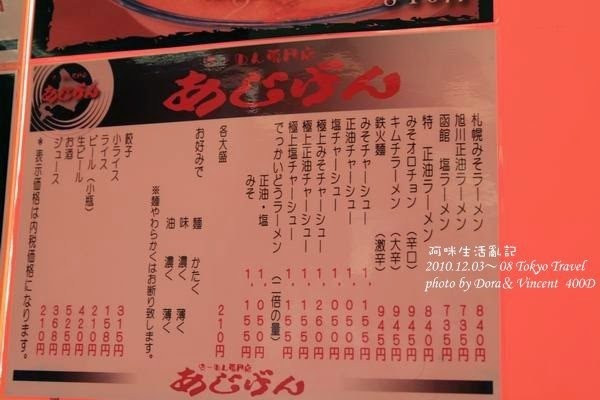 らーめん専門店
あじげん
札幌みそラーメン 840円
旭川正油ラーメン 735円
函館 塩ラーメン 735円
特 正油ラーメン 840円
みそオロチョン (辛口) 945円
キムチラーメン (大辛) 945円
鉄火麺 (激辛) 945円
みそチャーシュー 1,155円
正油チャーシュー 1,050円
塩チャーシュー 1,050円
極上みそチャーシュー 1,260円
極上正油チャーシュー 1,155円
極上塩チャーシュー 1,155円
でっかいどうラーメン (二倍の量)
正油・塩 1,050円
みそ 1,155円
各大盛 210円
お好みで
麺 かたく
味 濃く 薄く
油 濃く 薄く
※麺やわらかくはお断り致します。
餃子 315円
小ライス 158円
ライス 210円
ビール(小瓶) 420円
生ビール 525円
お酒 368円
ジュース 210円
*表示価格は内税価格になります。
らーめん専門店
あじげん
阿咪生活亂記
2010.12.03~08 Tokyo Travel
photo by Dora & Vincent 400D